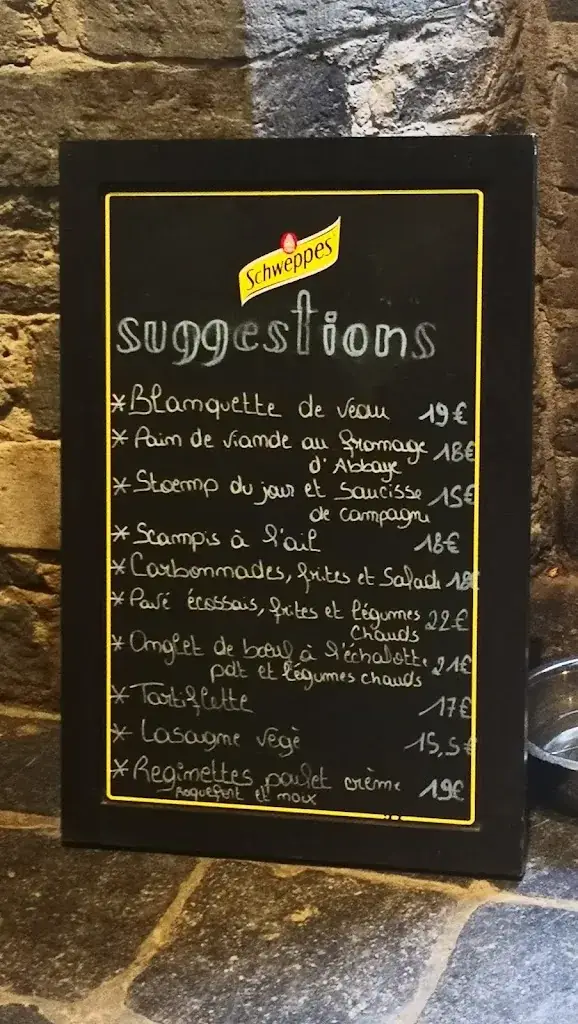 Schweppes
suggestions
*Blanquette de veau 19€
*Pain de viande au fromage 18€
d'Abbaye
*Stoemp du jour et Saucisse 15€
de campagne
*Scampis à l'ail 18€
*Carbonnades, frites et Salade 18€
*Pavé écossais, frites et légumes 22€
chauds
*Onglet de bœuf à l'échalotte 21€
pdt et légumes chauds
*Tartiflette 17€
*Lasagne végé 15,5€
*Reginettes poulet crème 19€
Roquefort et noix